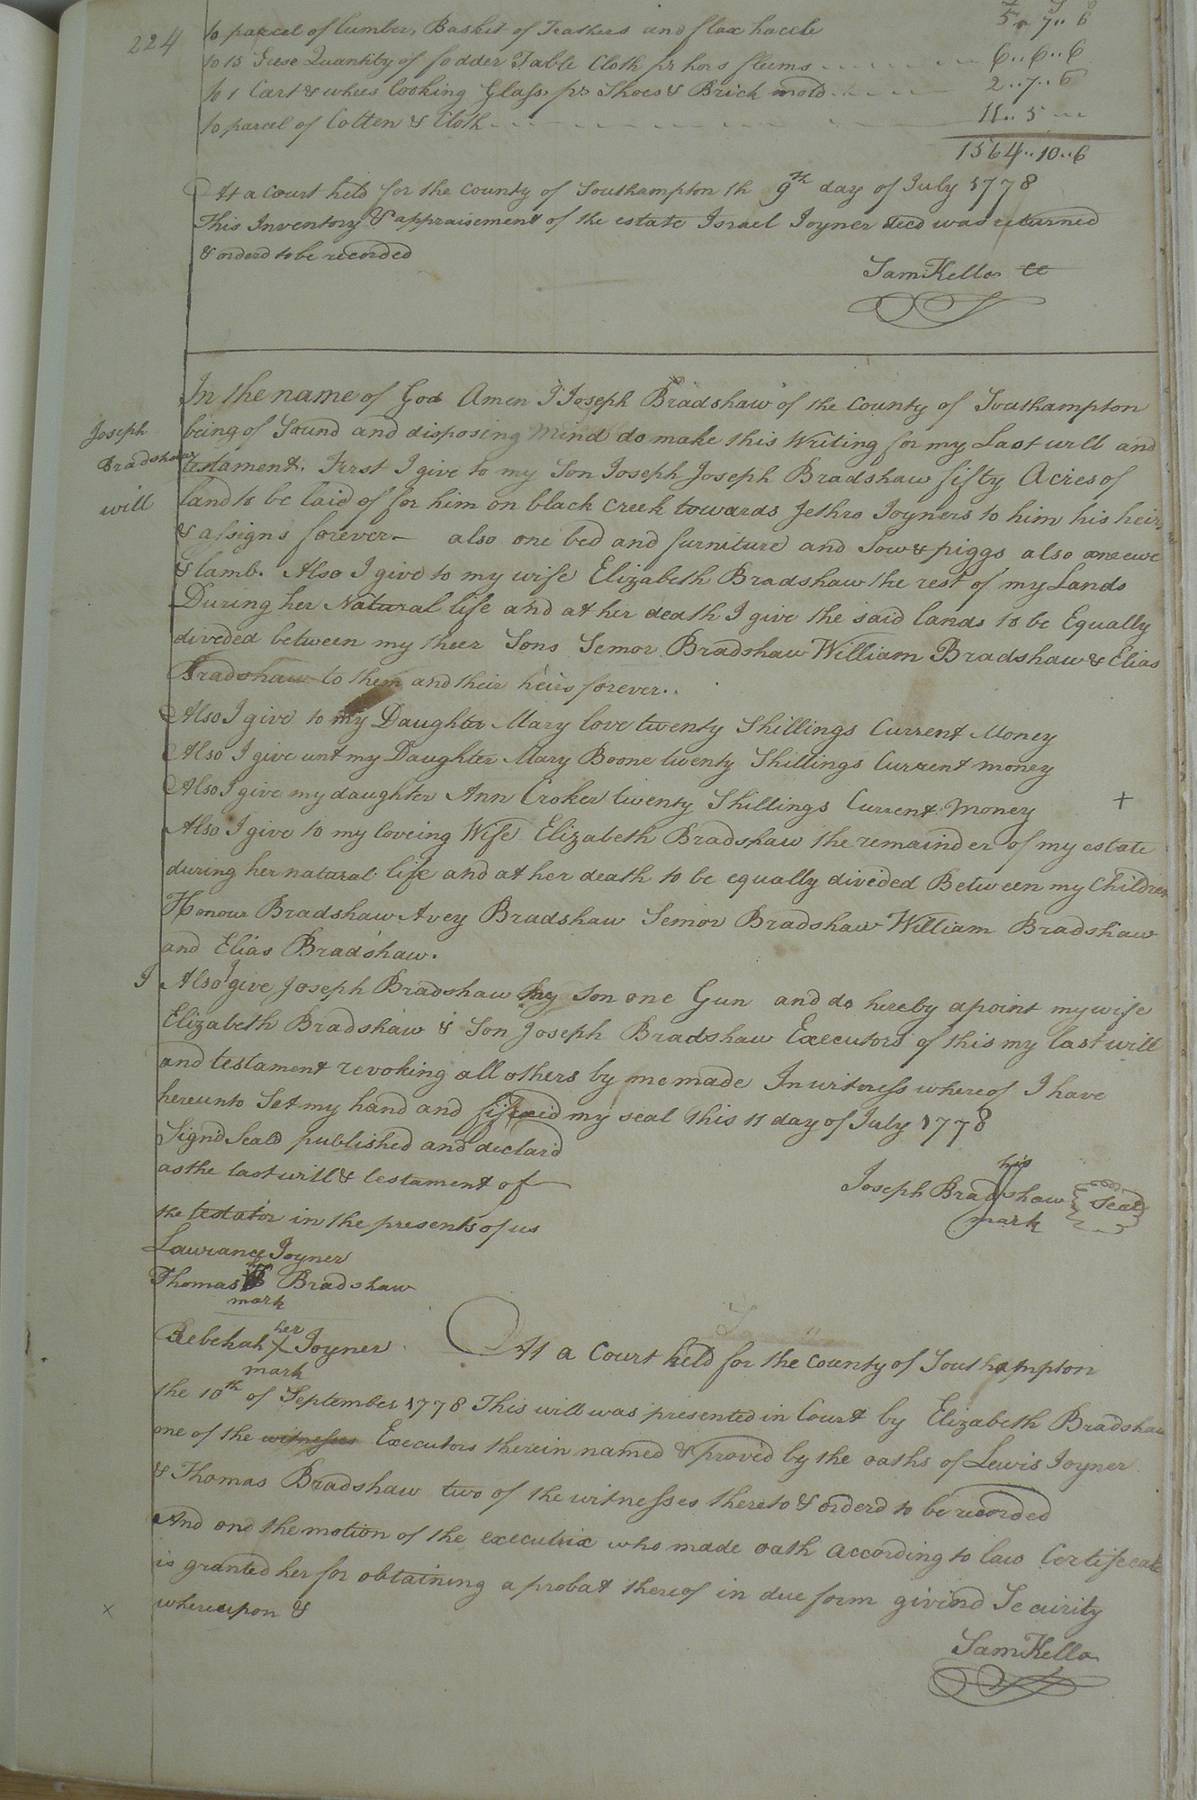 224
to parcel of lumber, Basket of Feathers and flax hackle 5.. 7.. 6
to 15 Geese Quantity of fodder Table Cloth pr hors fleems 6.. 6.. 6
to 1 Cart & whees looking Glass pr Shoes & Brick mold 2.. 7.. 6
to parcel of Cotten & Cloth 11.. 5
1564.. 10.. 6
At a Court held for the County of Southampton th 9th day of July 1778
This Inventory & appraisement of the estate Israel Joyner Decd was returned
& orderd to be recorded
Sam Kello CC
Joseph
Bradshaw
will
In the name of God Amen I Joseph Bradshaw of the County of Southampton
being of Sound and disposing mind do make this Writing for my Last will and
testament. First I give to my Son Joseph Joseph Bradshaw fifty Acres of
land to be laid of for him on black Creek towards Jethro Joyners to him his heirs
& assigns forever— also one bed and furniture and Sow & piggs also one ewe
& lamb. Also I give to my wife Elizabeth Bradshaw the rest of my Lands
During her Natural life and at her death I give the said lands to be Equally
diveded between my theer Sons Semor Bradshaw William Bradshaw & Elias
Bradshaw to them and their heirs forever..
Also I give to my Daughter Mary love twenty Shillings Current Money
Also I give unt my Daughter Mary Boone twenty Shillings Current money
Also I give my daughter Ann Croker twenty Shillings Current Money +
Also I give to my loveing Wife Elizabeth Bradshaw the remainder of my estate
during her natural life and at her death to be equally diveded Between my Children
Honour Bradshaw Avey Bradshaw Semor Bradshaw William Bradshaw
and Elias Bradshaw.
I Also I give Joseph Bradshaw my Son one Gun and do hereby apoint my wife
Elizabeth Bradshaw & Son Joseph Bradshaw Executors of this my last will
and testament revoking all others by me made In witness whereof I have
hereunto Set my hand and my seal this 11 day of July 1778
Signd Seald published and declard
as the last will & testament of
the testator in the presents of us
his
Joseph Bradshaw Seal
mark
Lawrance Joyner
Thomas Bradshaw
mark
her
Rebekah X Joyner
mark
At a Court held for the County of Southampton
the 10th of September 1778 This will was presented in Court by Elizabeth Bradshaw
one of the witnesses Executors therein named & proved by the oaths of Lewis Joyner
& Thomas Bradshaw two of the witnesses thereto & orderd to be recorded
And ond the motion of the executrix who made oath according to law Certificate
is granted her for obtaining a probat thereof in due form givind Security
whereupon &
x
Sam Kello